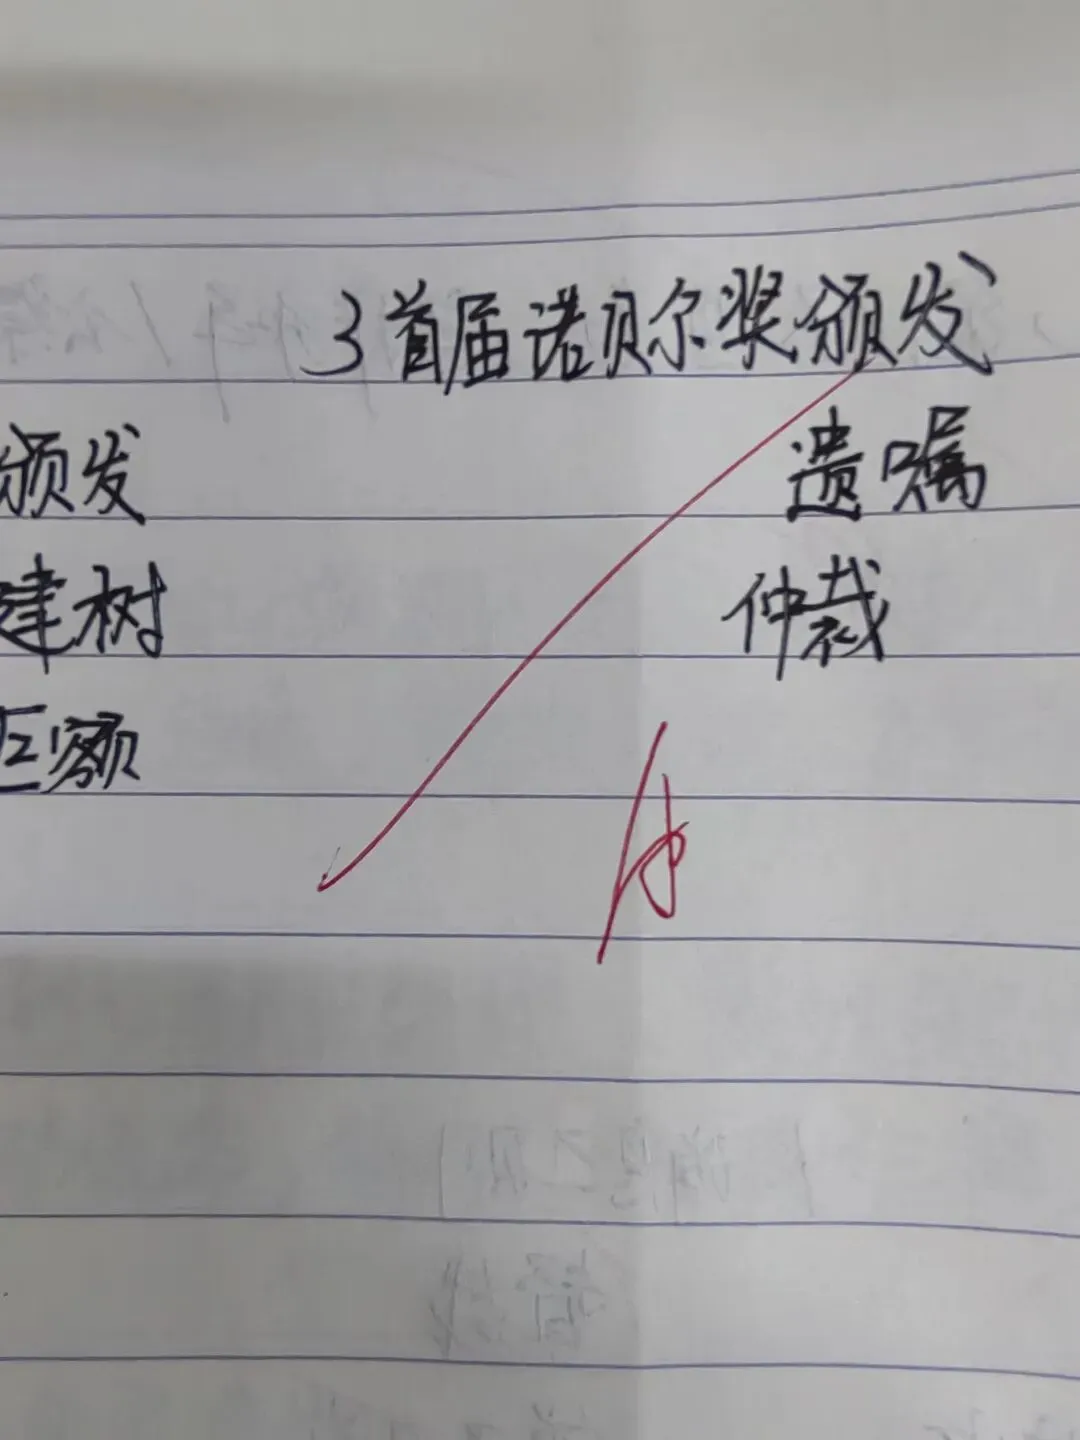 3 首届诺贝尔奖颁发
颁发 遗嘱
建树 仲裁
巨额
A